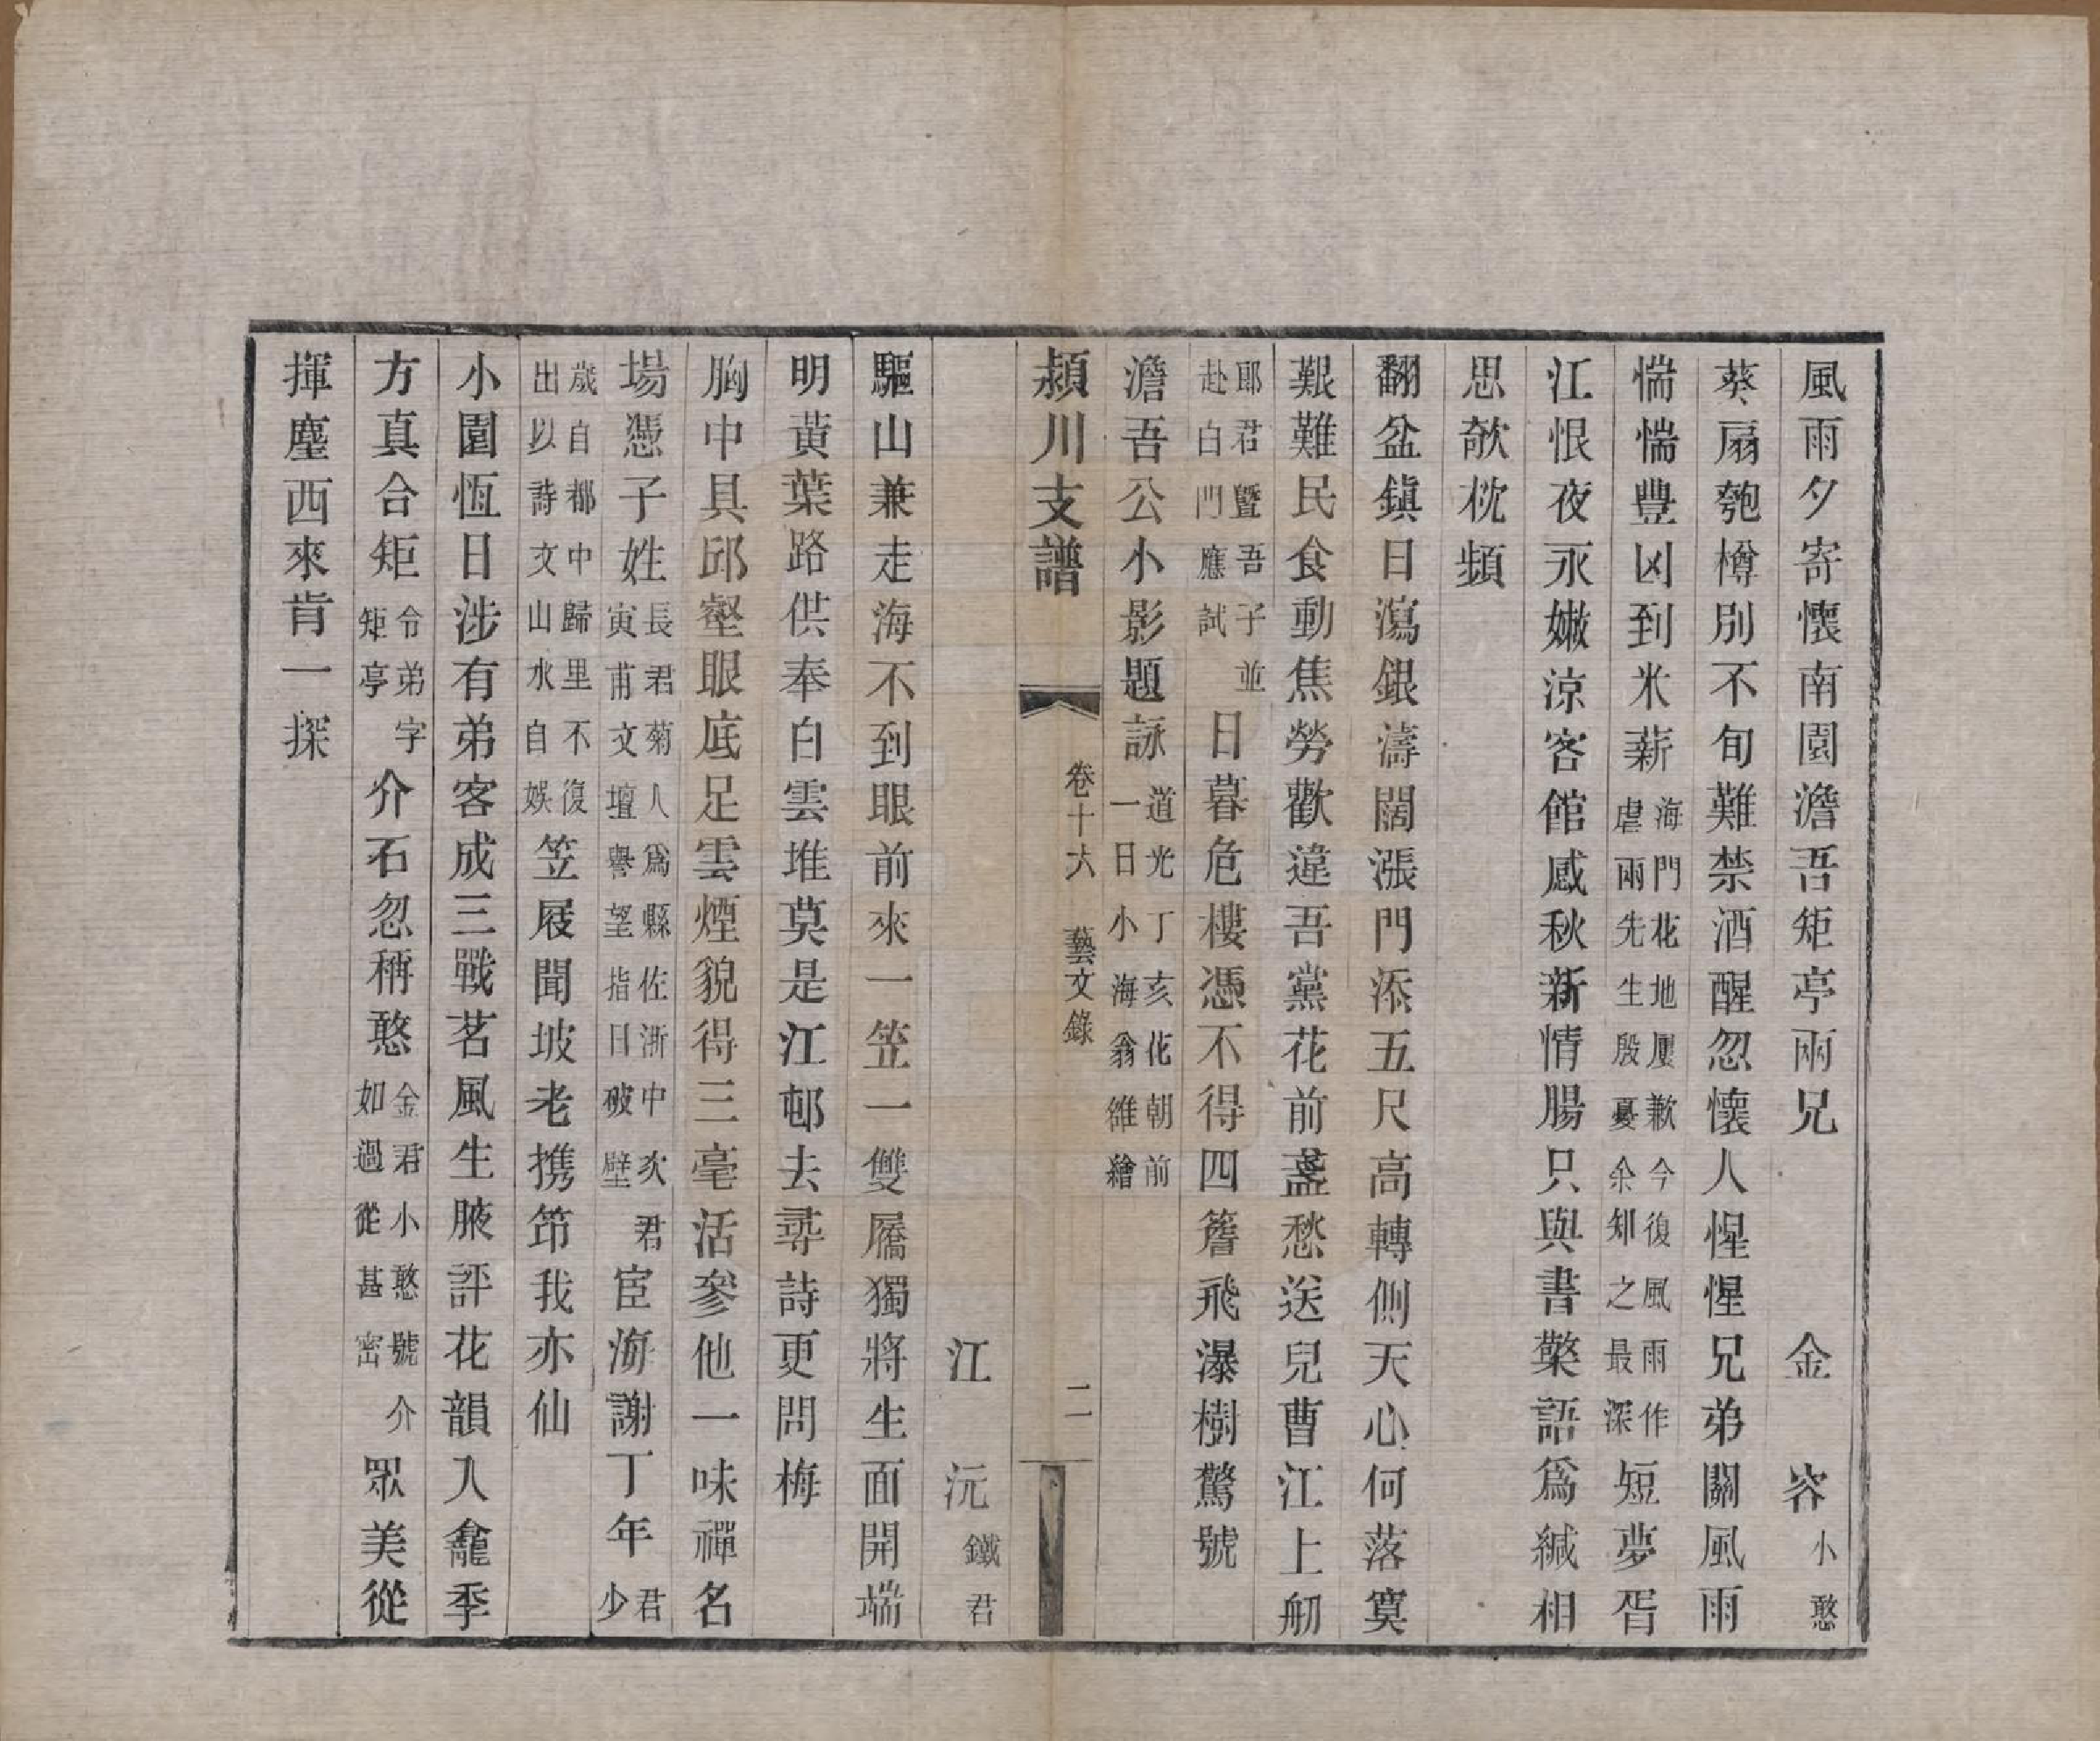 風雨夕寄懷南園澹吾矩亭兩兄　金　容小憨
葵扇匏樽別不旬難禁酒醒忽懷人惺惺兄弟關風雨
惴惴豐凶到米薪海門花地屢歉今復風雨作虐兩先生殷憂余知之最深短夢胥
江恨夜永嫩涼客館感秋新情腸只與書檠語爲緘相
思欹枕頻
翻盆鎮日瀉銀濤闊漲門添五尺高轉側天心何落寞
艱難民食動焦勞歡違吾黨花前盞愁送兒曹江上舠
郎君暨吾子並赴白門應試日暮危樓憑不得四簷飛瀑樹驚號
澹吾公小影題詠道光丁亥花朝前一日小海翁雒繪
潁川支譜　卷十六　藝文錄　二
江　沅鐵君
驅山兼走海不到眼前來一笠一雙屩獨將生面開端
明黃葉路供奉白雲堆莫是江邨去尋詩更問梅
胸中具邱壑眼底足雲煙貌得三毫活參他一味禪名
場憑子姓長君菊人爲縣佐浙中次君寅甫文壇譽望指日破壁宦海謝丁年君少
歲自都中歸里不復出以詩文山水自娛笠屐聞坡老携笻我亦仙
小園恆日涉有弟客成三戰茗風生腋評花韻入龕季
方真合矩令弟字矩亭介石忽稱憨金君小憨號介如過從甚密眾美從
揮麈西來肯一探